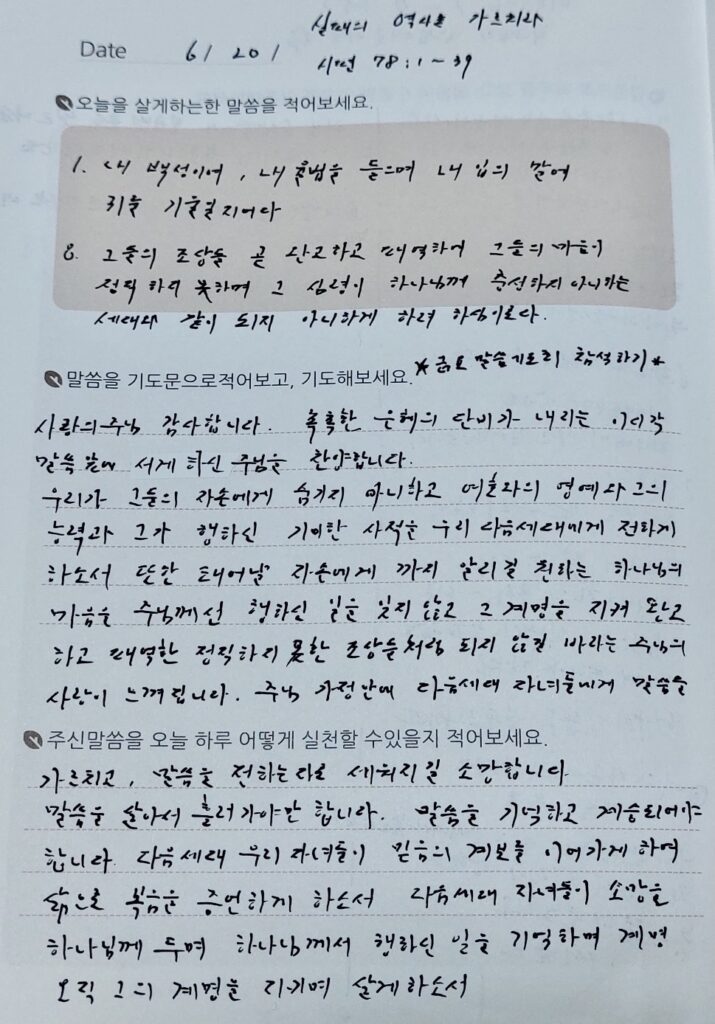 실패의 역사를 가르치라
Date 6 / 20 /
시편 78 : 1 ~ 39
오늘을 살게하는한 말씀을 적어보세요.
1. 내 백성이여, 내 율법을 들으며 내 입의 말에
귀를 기울일지어다
8. 그들의 조상들 곧 완고하고 패역하여 그들의 마음이
정직 하지 못하며 그 심령이 하나님께 충성하지 아니하는
세대와 같이 되지 아니하게 하려 하심이로다.
*금요 말씀기도회 참석하기*
말씀을 기도문으로적어보고, 기도해보세요.
사랑의주님 감사합니다. 촉촉한 은혜의 단비가 내리는 이시각
말씀 앞에 서게 하신 주님을 찬양합니다.
우리가 그들의 자손에게 숨기지 아니하고 여호와의 영예와 그의
능력과 그가 행하신 기이한 사적을 우리 다음세대에게 전하게
하소서 또한 태어날 자손에게 까지 알리길 원하는 하나님의
마음을 주님께선 행하신 일을 잊지 않고 그 계명을 지켜 완고
하고 패역한 정직하지 못한 조상들처럼 되지 않길 바라는 주님의
사랑이 느껴집니다. 주님 가정안에 다음세대 자녀들에게 말씀을
주신말씀을 오늘 하루 어떻게 실천할 수있을지 적어보세요.
가르치고, 말씀을 전하는자로 세워지길 소망합니다
말씀을 살아서 흘러가야만 합니다. 말씀을 기억하고 계승되어야
합니다. 다음세대 우리 자녀들이 믿음의 계보를 이어가게 하여
삶으로 복음을 증언하게 하소서 다음세대 자녀들이 소망을
하나님께 두며 하나님께서 행하신 일을 기억하며 계명
오직 그의 계명을 지키며 살게하소서